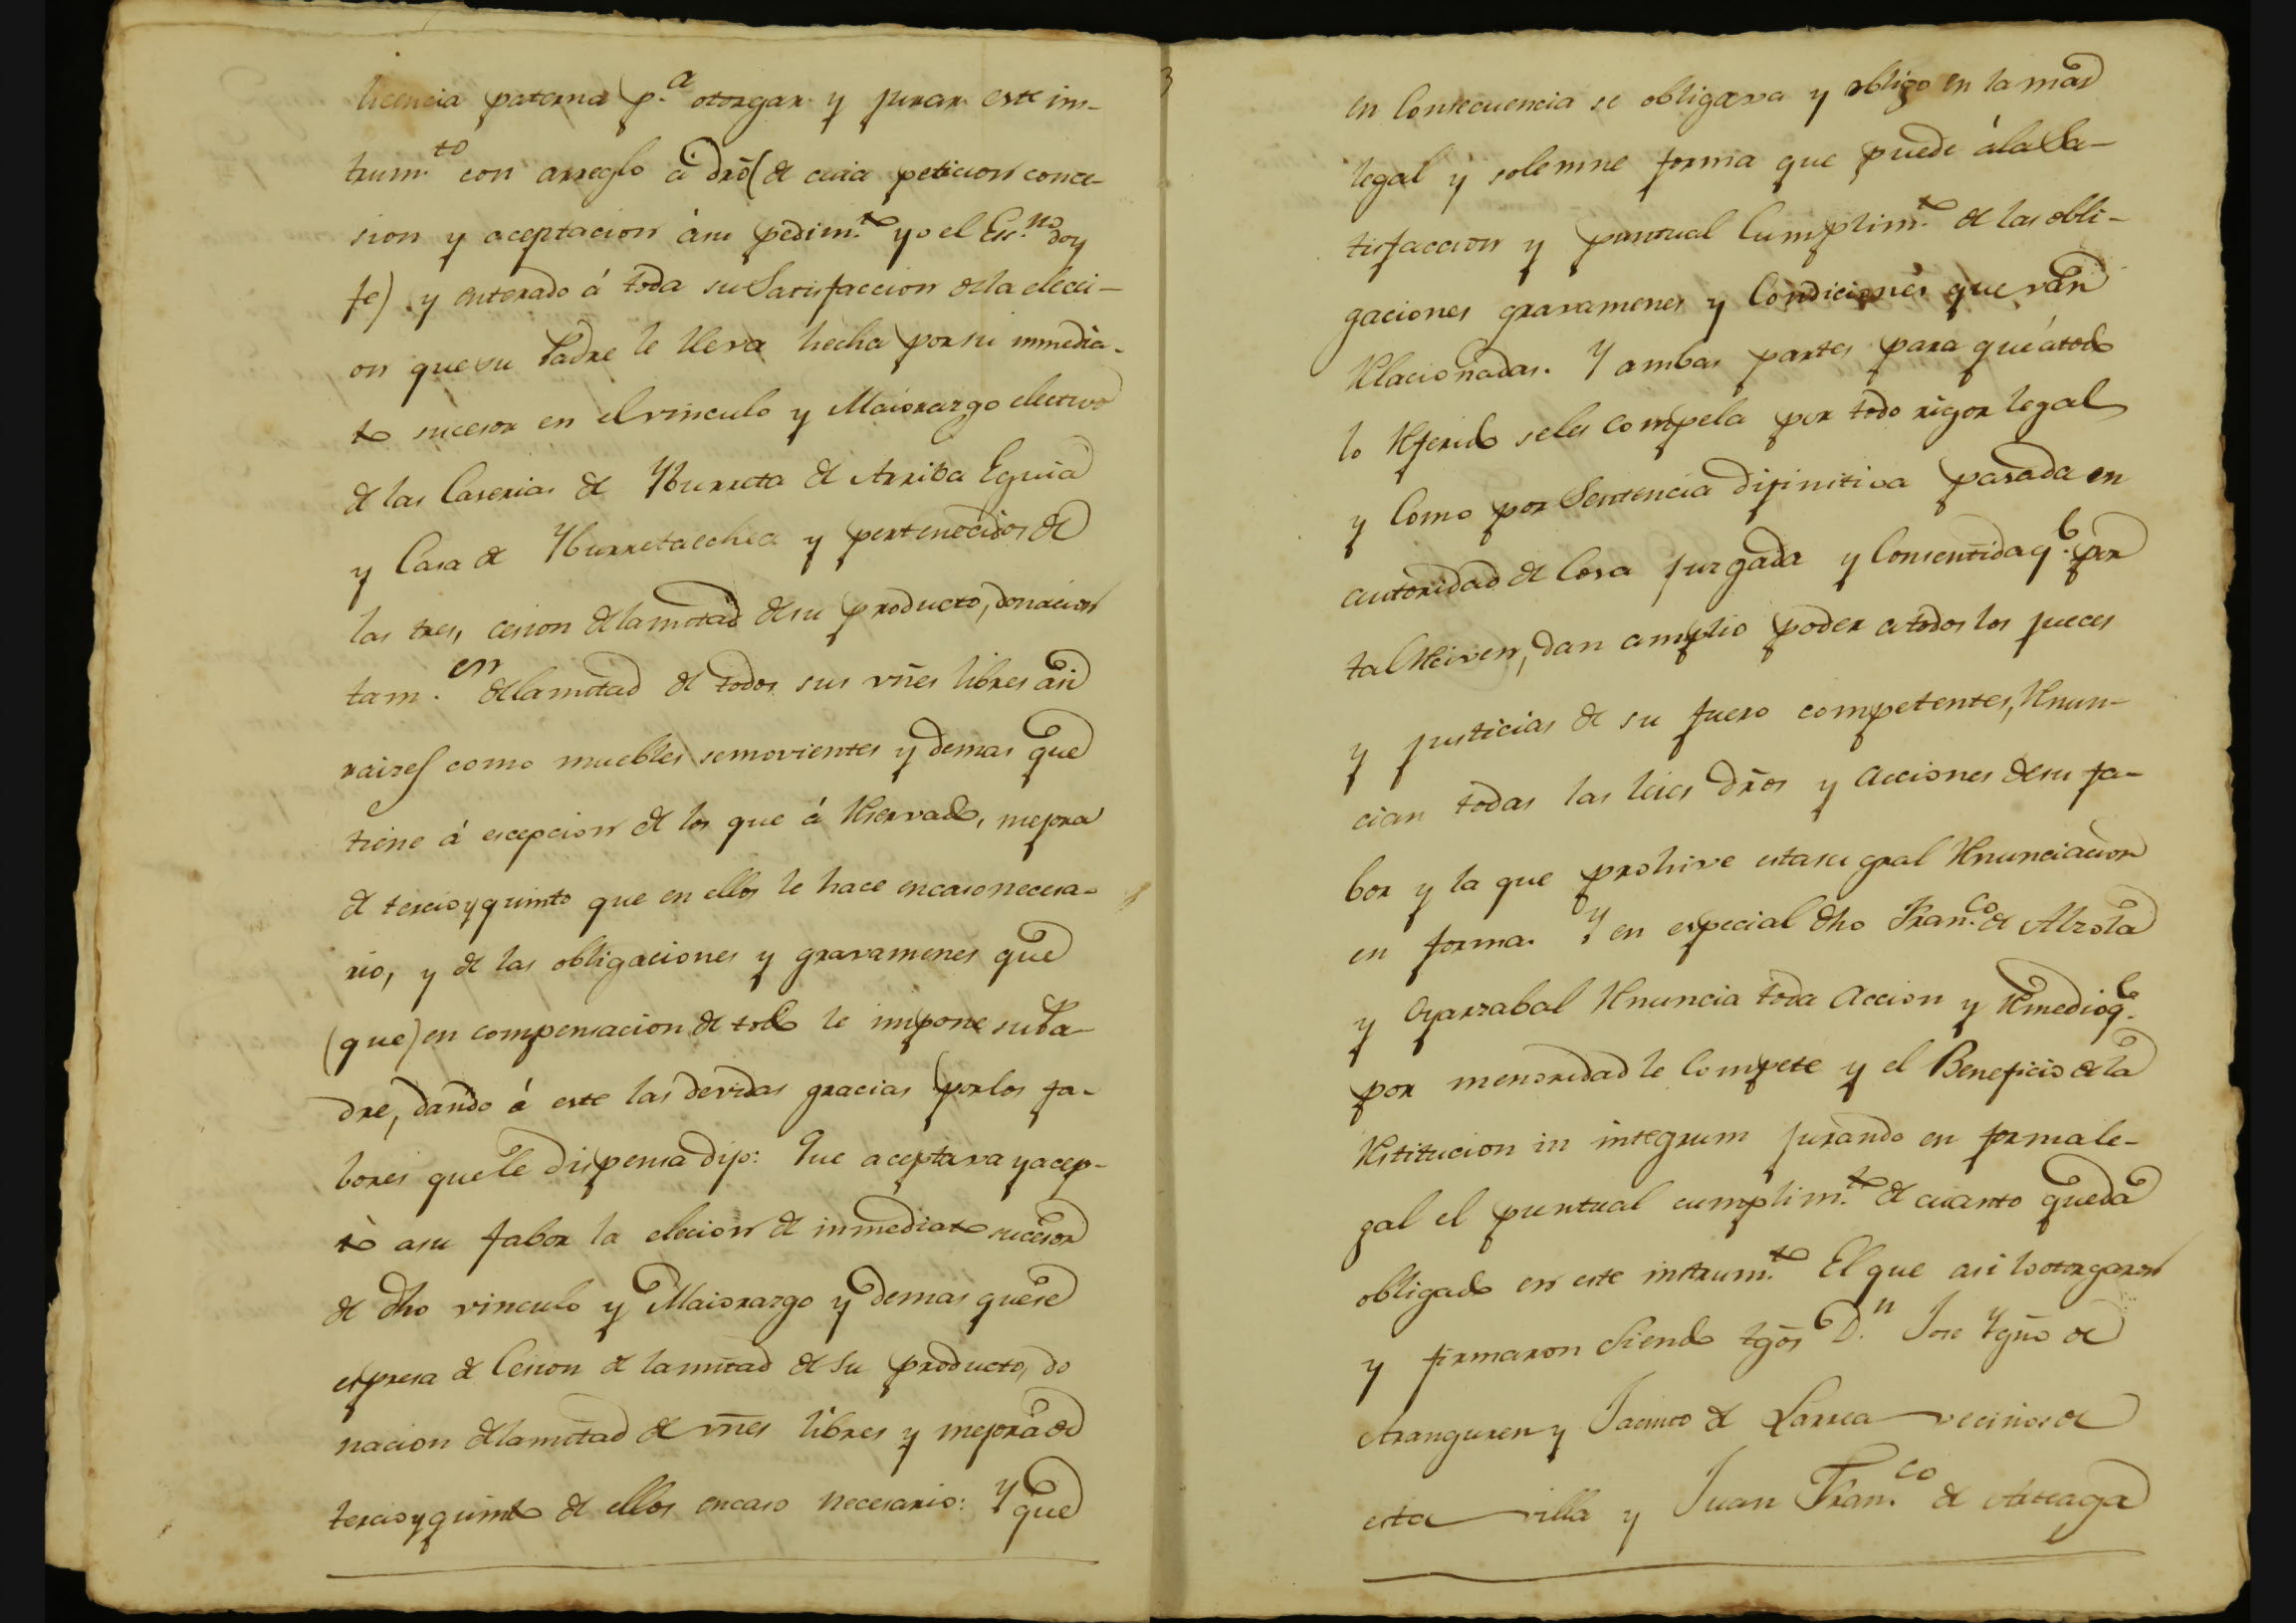 licencia paterna p.ª otorgar y jurar este ins-
trum.to con arreglo á dro (de cuia peticion conce-
sion y aceptacion á su pedim.to yo el Ess.no doy
fe) y enterado á toda su Satisfaccion de la elecci-
on que su Padre le lleva hecha por su inmedia-
to sucesor en el vinculo y Maiorazgo electivo
de las Caserias de Yburreta de Arriba Eguia
y Casa de Yburretaechea y pertenecidos de
las tres, cesion de la mitad de su producto, donacion
tam.en de la mitad de todos sus vñes libres asi
raizes como muebles semovientes y demas que
tiene á escepcion de los que á Reservado, mejora
de tercio y quinto que en ellos le hace en caso necesa-
rio, y de las obligaciones y gravamenes que
(que) en compensacion de todo le impone su Pa-
dre, dando á este las devidas gracias por los fa-
bores que le dispensa dijo: Que aceptava y acep-
tó a su fabor la elecion de inmediato sucesor
de dho vinculo y Maiorazgo y demas que se
espresa de Cesion de la mitad de su producto, do
nacion de la mitad de vñes libres y mejora de
tercio y quinto de ellos en caso necesario: Y que
3
en Consecuencia se obligava y obligo en la mas
legal y solemne forma que puede á la Sa-
tisfaccion y puntual Cumplim.to de las obli-
gaciones gravamenes y Condiciones que ván
Relacionadas. Y ambas partes para que á todo
lo Referido se les compela por todo rigor legal
y Como por Sentencia difinitiva pasada en
autoridad de Cosa juzgada y Consentida q.e por
tal Reciven, dan amplio poder a todos los jueces
y justicias de su fuero competentes, Renun-
cian todas las leies dros y acciones de su fa-
bor y la que prohive esta su gral Renunciacion
en forma. Y en especial dho Fran.co de Alzola
y Oyarzabal Renuncia toda accion y Remedio q.e
por menoridad le Compete y el Beneficio de la
Restitucion in integrum jurando en forma le-
gal el puntual cumplim.to de cuanto queda
obligado en este instrum.to El que asi lo otorgaron
y firmaron Siendo tgos D.n Jose Ygño de
Aranguren y Jacinto de Larrea vecinos de
esta villa y Juan Fran.co de Arteaga